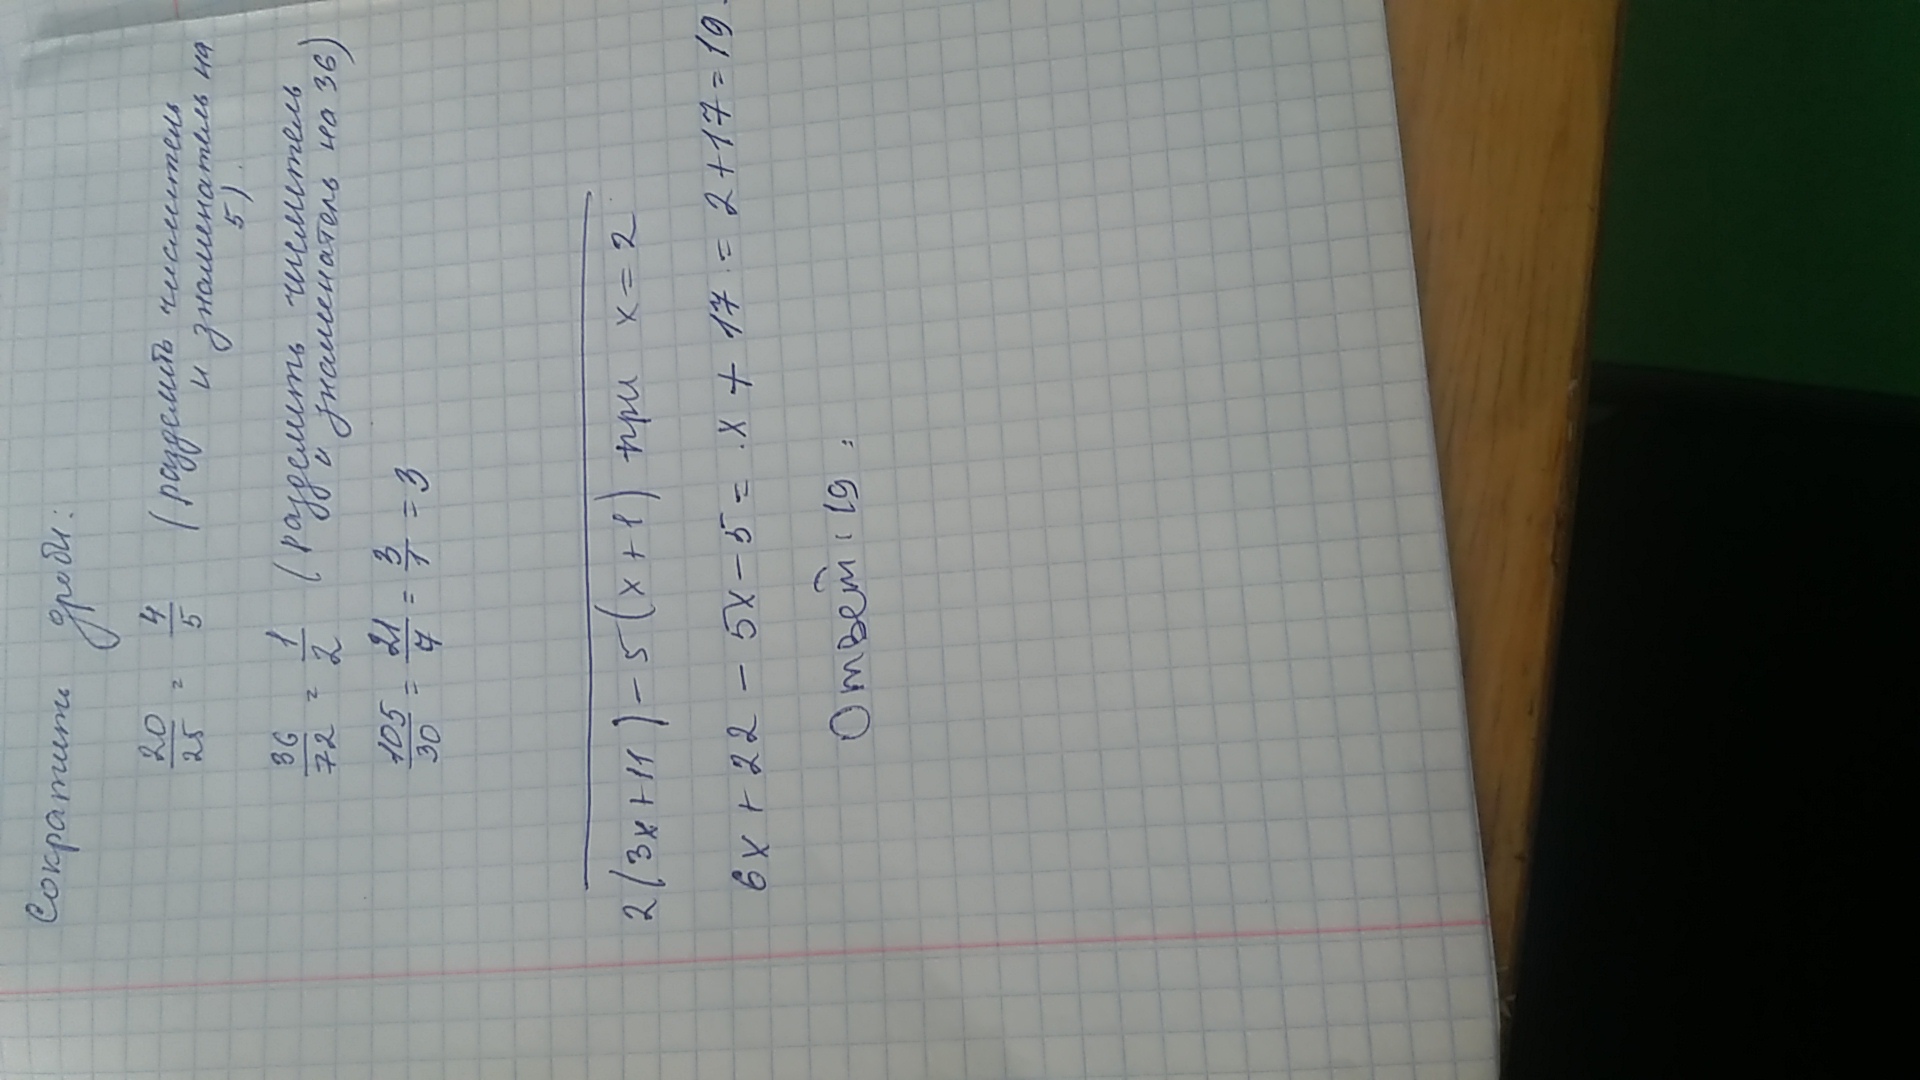 Сократить дроби:
20/25 = 4/5 (разделить числитель
и знаменатель на
5).
36/72 = 1/2 (разделить числитель
и знаменатель на 36)
105/30 = 21/7 = 3/1 = 3
2(3x+11)-5(x+1) при x=2
6x+22-5x-5=x+17=2+17=19.
Ответ: 19.